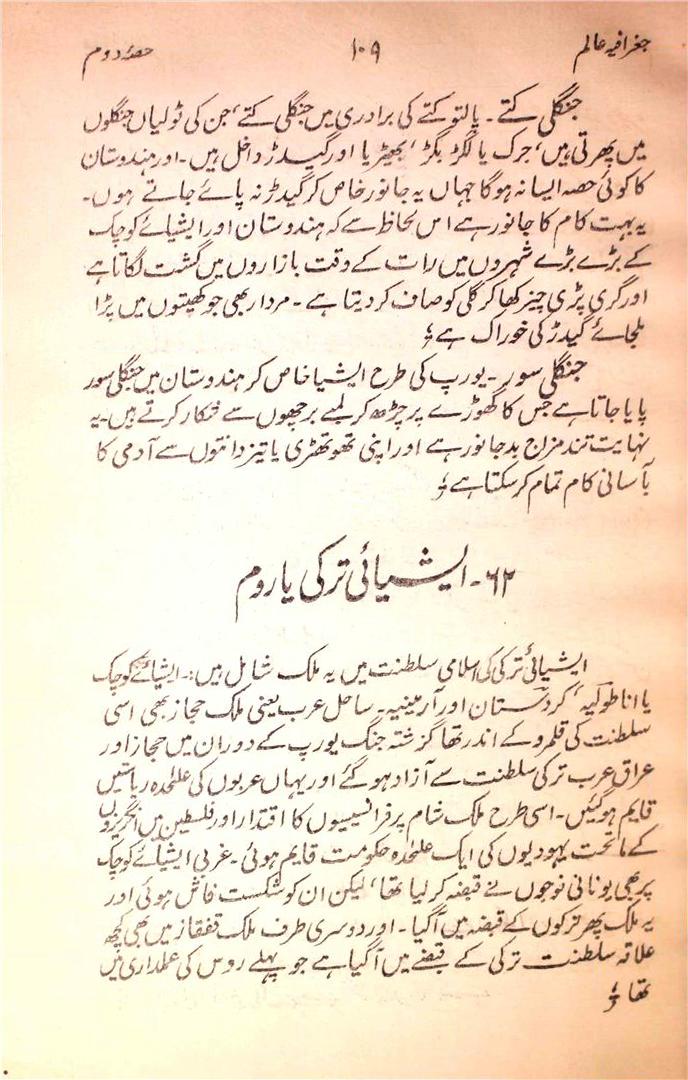 جغرافیہ عالم ۱۰۹ حصۂ دوم
جنگلی کتے ۔ پالتو کتے کی برادری میں جنگلی کتے ‘ جن کی ٹولیاں جنگلوں
میں پھرتی ہیں ‘ جرک یا لگڑ بگڑ ‘ بھیڑیا اور گیدڑ داخل ہیں ۔ اور ہندوستان
کا کوئی حصہ ایسا نہ ہوگا جہاں یہ جانور خاص کر گیدڑ نہ پائے جاتے ہوں ۔
یہ بہت کام کا جانور ہے اس لحاظ سے کہ ہندوستان اور ایشیائے کوچک
کے بڑے بڑے شہروں میں رات کے وقت بازاروں میں گشت لگاتا ہے
اور گری پڑی چیز کھا کر گلی کو صاف کر دیتا ہے ۔ مردار بھی جو کھیتوں میں پڑا
ملجائے گیدڑ کی خوراک ہے ؤ
جنگلی سور ۔ یورپ کی طرح ایشیا خاص کر ہندوستان میں جنگلی سور
پایا جاتا ہے جس کا گھوڑے پر چڑھ کر لمبے برچھوں سے شکار کرتے ہیں ۔ یہ
نہایت تند مزاج بد جانور ہے اور اپنی تھوتھڑی یا تیز دانتوں سے آدمی کا
بآسانی کام تمام کر سکتا ہے ؤ
۶۲ ۔ ایشیائی ترکی یا روم
ایشیائی ترکی کی اسلامی سلطنت میں یہ ملک شامل ہیں :۔ ایشیائے کوچک
یا اناطولیہ ‘ کردستان اور آرمینیہ ۔ ساحل عرب یعنی ملک حجاز بھی اسی
سلطنت کی قلمرو کے اندر تھا گزشتہ جنگ یورپ کے دوران میں حجاز اور
عراق عرب ترکی سلطنت سے آزاد ہو گئے اور یہاں عربوں کی علٰحدہ ریاستیں
قایم ہو گئیں ۔ اسی طرح ملک شام پر فرانسیسیوں کا اقتدار اور فلسطین میں انگریزوں
کے ماتحت یہودیوں کی ایک علٰحدہ حکومت قایم ہوئی ۔ غربی ایشیائے کوچک
پر بھی یونانی فوجوں نے قبضہ کر لیا تھا ‘ لیکن ان کو شکست فاش ہوئی اور
یہ ملک پھر ترکوں کے قبضہ میں آ گیا ۔ اور دوسری طرف ملک قفقاز میں بھی کچھ
علاقہ سلطنت ترکی کے قبضے میں آ گیا ہے جو پہلے روس کی عملداری میں
تھا ؤ